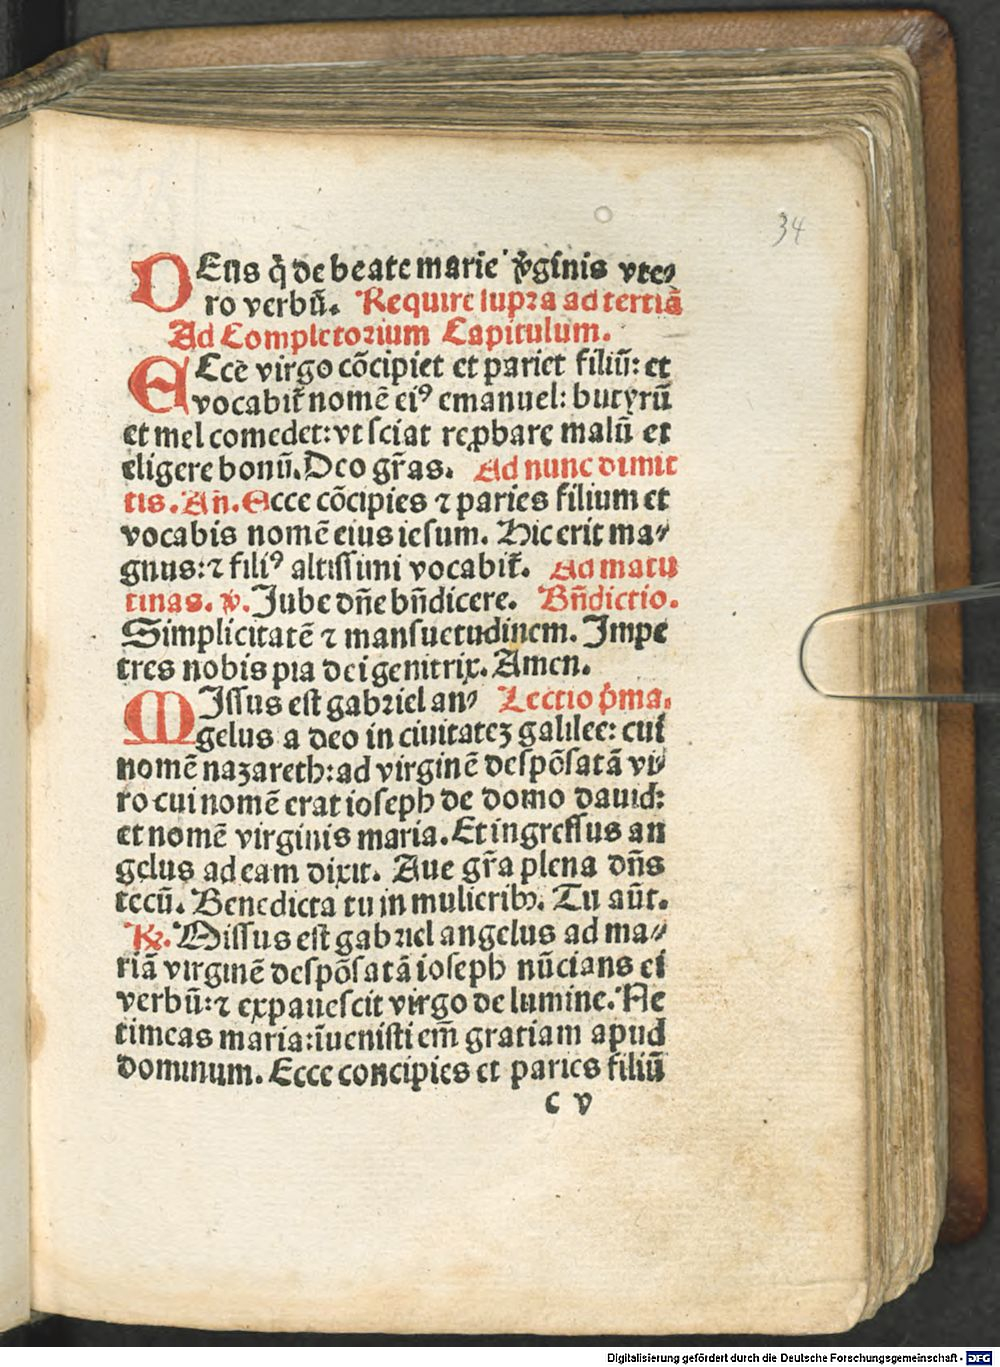 34
DEus q̃ de beate marie v̾ginis vte⸗
ro verbū. Require supra ad tertiā
Ad Completorium Capitulum.
ECce virgo cōcipiet et pariet filiū: et
vocabit̃ nomē eiꝰ emanuel: butyrū
et mel comedet: vt sciat reꝓbare malū et
eligere bonū. Deo gr̃as. Ad nunc dimit
tis. Añ. Ecce cōcipies ⁊ paries filium et
vocabis nomē eius iesum. Hic erit ma⸗
gnus: ⁊ filiꝰ altissimi vocabit̃. Ad matu
tinas. v̾. Jube dn̄e bn̄dicere. Bn̄dictio.
Simplicitatē ⁊ mansuetudinem. Impe
tres nobis pia dei genitrix. Amen.
MIssus est gabriel an⸗ Lectio p̓ma.
gelus a deo in ciuitatez galilee: cui
nomē nazareth: ad virginē despōsatā vi⸗
ro cui nomē erat ioseph de domo dauid:
et nomē virginis maria. Et ingressus an
gelus ad eam dixit. Aue gr̃a plena dn̄s
tecū. Benedicta tu in mulierib⁹. Tu aūt.
℟. Missus est gabriel angelus ad ma⸗
riā virginē despōsatā ioseph nūcians ei
verbū: ⁊ expauescit virgo de lumine. Ne
timeas maria: īuenisti em̄ gratiam apud
dominum. Ecce concipies et paries filiū
c v
Digitalisierung gefördert durch die Deutsche Forschungsgemeinschaft - DFG